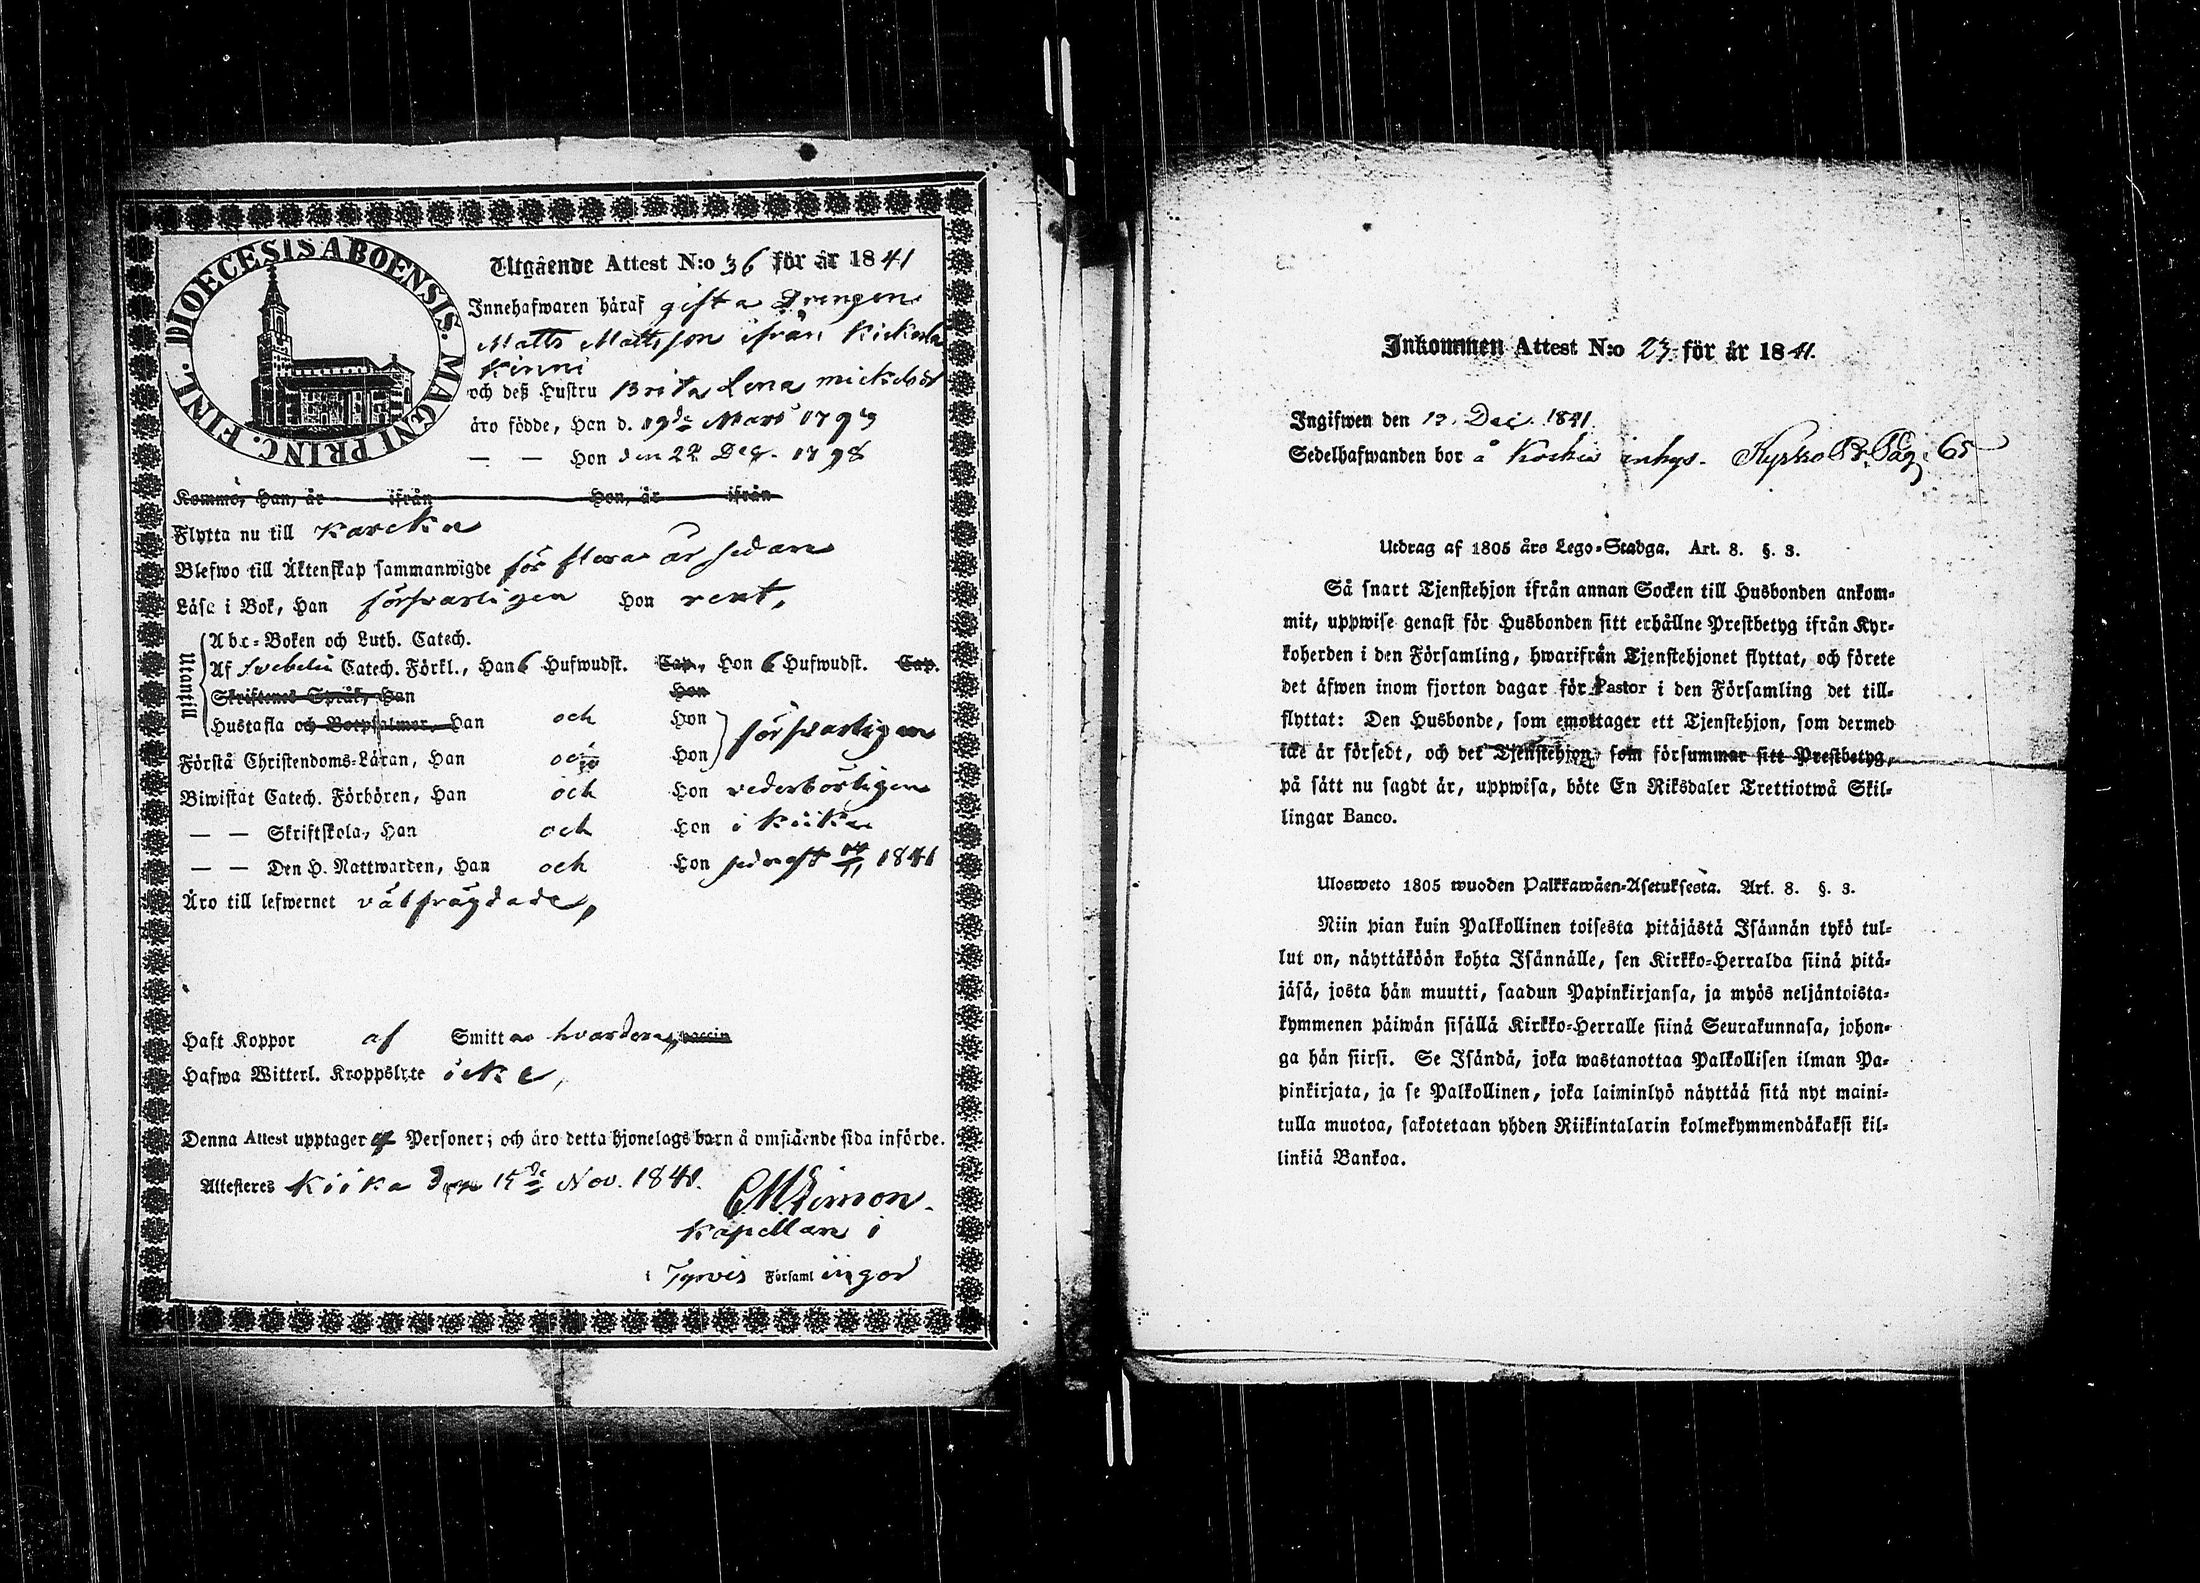 DIOECESIS ABOENSIS. MAGNI PRINC. FINL.
Utgående Attest N:o 36 för år 1841
Innehafwaren häraf gifta Drengen
Matts Mattsson ifrån Kickerla
Kinni
och deß Hustru Brita Lena Mickelsdr
äro födde, Han d. 19de Mars 1799
— — Hon den 22 Dec. 1798
Kommo, Han, år ifrån Hon, år ifrån
Flytta nu till Karcku
Blefwo till Äktenskap sammanwigde för flera år sedan
Läsa i Bok, Han försvarligen Hon rent,
Utantill
Abc-Boken och Luth. Catech.
Af Svebelii Catech. Förkl., Han 6 Hufwudst. Cap., Hon 6 Hufwudst. Cap.
Skriftenes Språk, Han Hon
Hustafla och Botpsalmer, Han och Hon
försvarligen
Förstå Christendoms-Läran, Han och Hon
Biwistat Catech. Förhören, Han och Hon vederbörligen
— — Skriftskola, Han och Hon i Kiika
— — Den H. Nattwarden, Han och Hon sednast 14/11 1841
Äro till lefwernet välfrägdade,
Haft Koppor af Smittan hvardera, vaccin
Hafwa Witterl. Kroppslyte icke,
Denna Attest upptager 4 Personer; och äro detta hjonelags barn å omstående sida införde.
Attesteres Kiika den 15de Nov. 1841.
C M Limon.
Kapellan i
i Tyrvis Församlingar
Inkommen Attest N:o 23 för år 1841.
Ingifwen den 12. Dec. 1841.
Sedelhafwanden bor å Kockis inhys. Kyrko B. Pag. 65
Utdrag af 1805 års Lego-Stadga. Art. 8. §. 3.
Så snart Tjenstehjon ifrån annan Socken till Husbonden ankom-
mit, uppwise genast för Husbonden sitt erhållne Prestbetyg ifrån Kyr-
koherden i den Församling, hwarifrån Tjenstehjonet flyttat, och förete
det äfwen inom fjorton dagar för Pastor i den Församling det till-
flyttat: Den Husbonde, som emottager ett Tjenstehjon, som dermed
icke är försedt, och det Tjenstehjon, som försummar sitt Prestbetyg,
på sätt nu sagdt är, uppwisa, böte En Riksdaler Trettiotwå Skil-
lingar Banco.
Ulosweto 1805 wuoden Palkkawäen-Asetuksesta. Art. 8. §. 3.
Niin pian kuin Palkollinen toisesta pitäjästä Isännän tykö tul-
lut on, näyttäköön kohta Isännälle, sen Kirkko-Herralda siinä pitä-
jäsä, josta hän muutti, saadun Papinkirjansa, ja myös neljäntoista-
kymmenen päiwän sisällä Kirkko-Herralle siinä Seurakunnasa, johon-
ga hän siirsi. Se Isändä, joka wastanottaa Palkollisen ilman Pa-
pinkirjata, ja se Palkollinen, joka laiminlyö näyttää sitä nyt maini-
tulla muotoa, sakotetaan yhden Riikintalarin kolmekymmendäkaksi kil-
linkiä Bankoa.